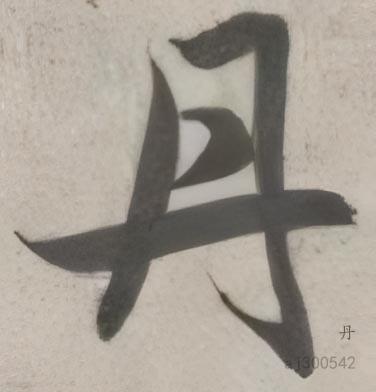 丹
丹
aj300542